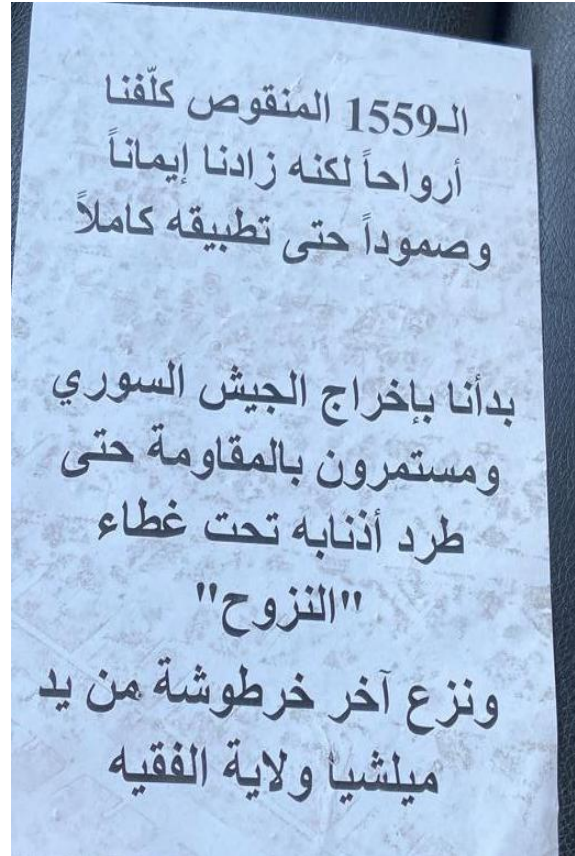 الـ1559 المنقوص كلّفنا
أرواحاً لكنه زادنا إيماناً
وصموداً حتى تطبيقه كاملاً
بدأنا بإخراج الجيش السوري
ومستمرون بالمقاومة حتى
طرد أذنابه تحت غطاء
"النزوح"
ونزع آخر خرطوشة من يد
ميلشيا ولاية الفقيه